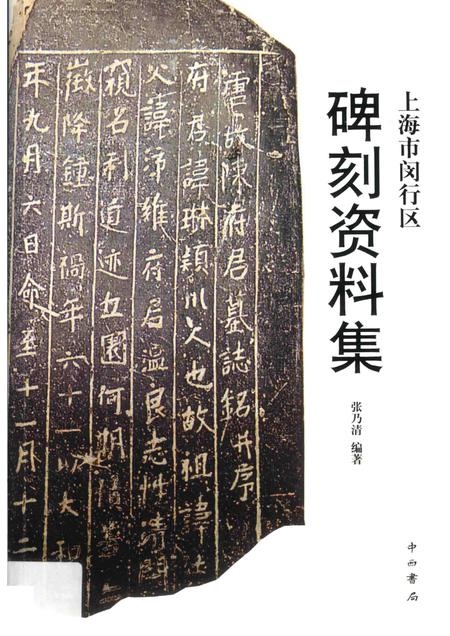 上海市闵行区
碑刻资料集
张乃清 编著
中西书局
故陳府君墓誌銘并序
府君諱琳穎川人也故祖諱
父諱希維府君温良志性清閑
窺名利道迹丘園何期
徵降鍾斯禍年六十一以大和
年九月六日命至十一月十二